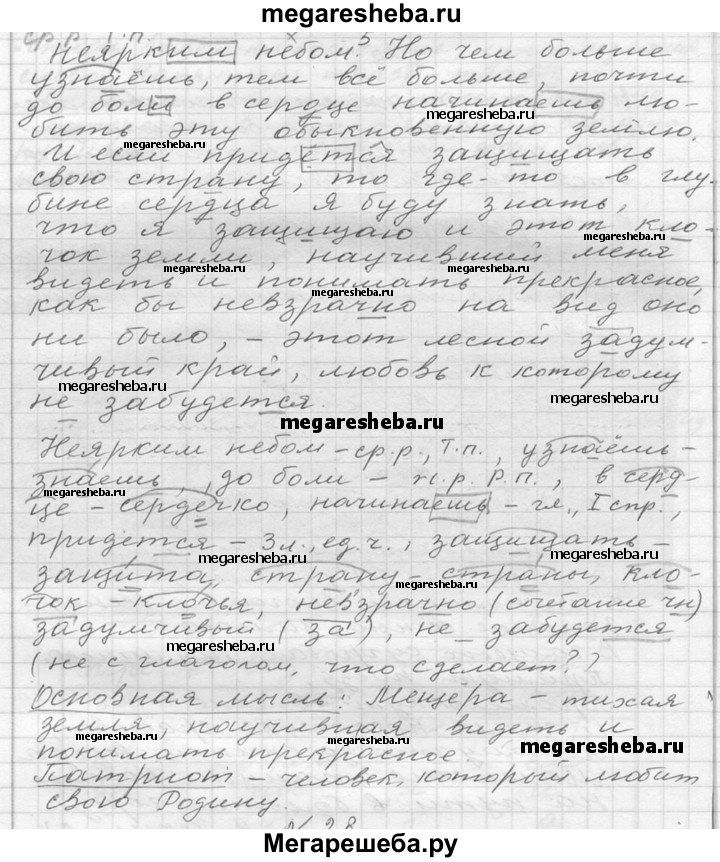 megaresheba.ru
ср.р. Т.п.
неярким небом.⁵ Но чем больше
узнаёшь, тем всё больше, почти
до боли в сердце начинаешь лю-
бить эту обыкновенную землю.
И если придётся защищать
свою страну, то где-то в глу-
бине сердца я буду знать,
что я защищаю и этот кло-
чок земли, научивший меня
видеть и понимать прекрасное,
как бы невзрачно на вид оно
ни было, – этот лесной задум-
чивый край, любовь к которому
не забудется.
Неярким небом – ср.р., Т.п., узнаёшь –
знаешь, до боли – ж.р. Р.п., в серд-
це – сердечко, начинаешь – гл., I спр.,
придется – 3 л., ед.ч., защищать –
защита, страну – страны, кло-
чок – клочья, невзрачно (сочетание чн)
задумчивый (за), не забудется
(не с глаголом, что сделает?)
Основная мысль: Мещёра – тихая
земля, научившая видеть и
понимать прекрасное.
Патриот – человек, который любит
свою Родину.
N 28
megaresheba.ru
megaresheba.ru
megaresheba.ru
megaresheba.ru
megaresheba.ru
megaresheba.ru
megaresheba.ru
megaresheba.ru
megaresheba.ru
megaresheba.ru
megaresheba.ru
megaresheba.ru
megaresheba.ru
megaresheba.ru
megaresheba.ru
Мегарешеба.ру